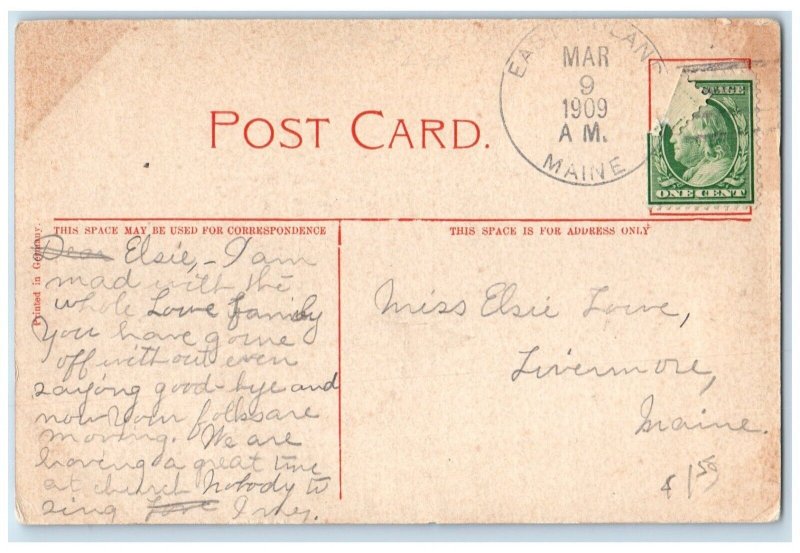 POST CARD.
MAR
9
1909
A M.
MAINE
ONE CENT
THIS SPACE MAY BE USED FOR CORRESPONDENCE
THIS SPACE IS FOR ADDRESS ONLY
Printed in Germany.
Dear Elsie,- I am
mad with the
whole Lowe family
You have gone
off without even
saying good-bye and
now your folks are
moving. We are
having a great time
at church Nobody to
sing
Miss Elsie Lowe,
Livermore,
Maine.